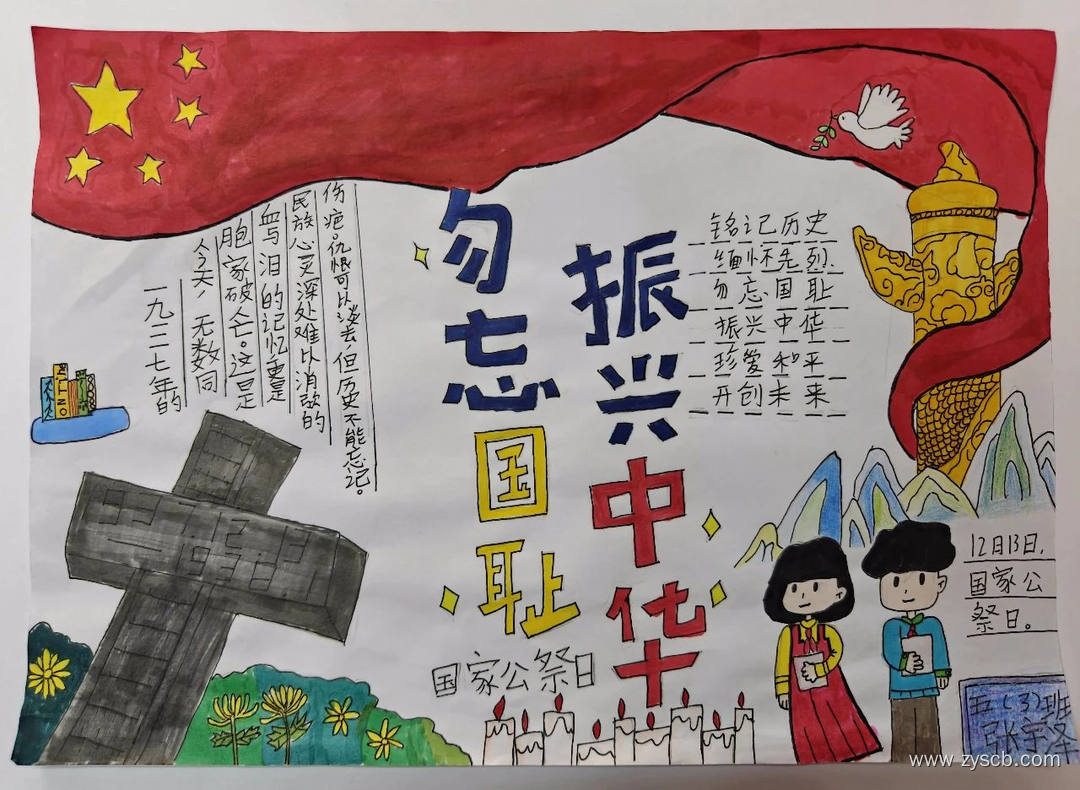 一九三七年的
今天，无数同
胞家破亡。这是
血与泪的记忆重是
民族心灵深处难以消散的
伤疤。仇恨可以淡去，但历史不能忘记。
勿忘国耻
振兴中华
国家公祭日
铭记历史
缅怀先烈
勿忘国耻
振兴中华
珍爱和平
开创未来
12月13日，
国家公
祭日。
五(3)班
张宇泽
www.zyscb.com